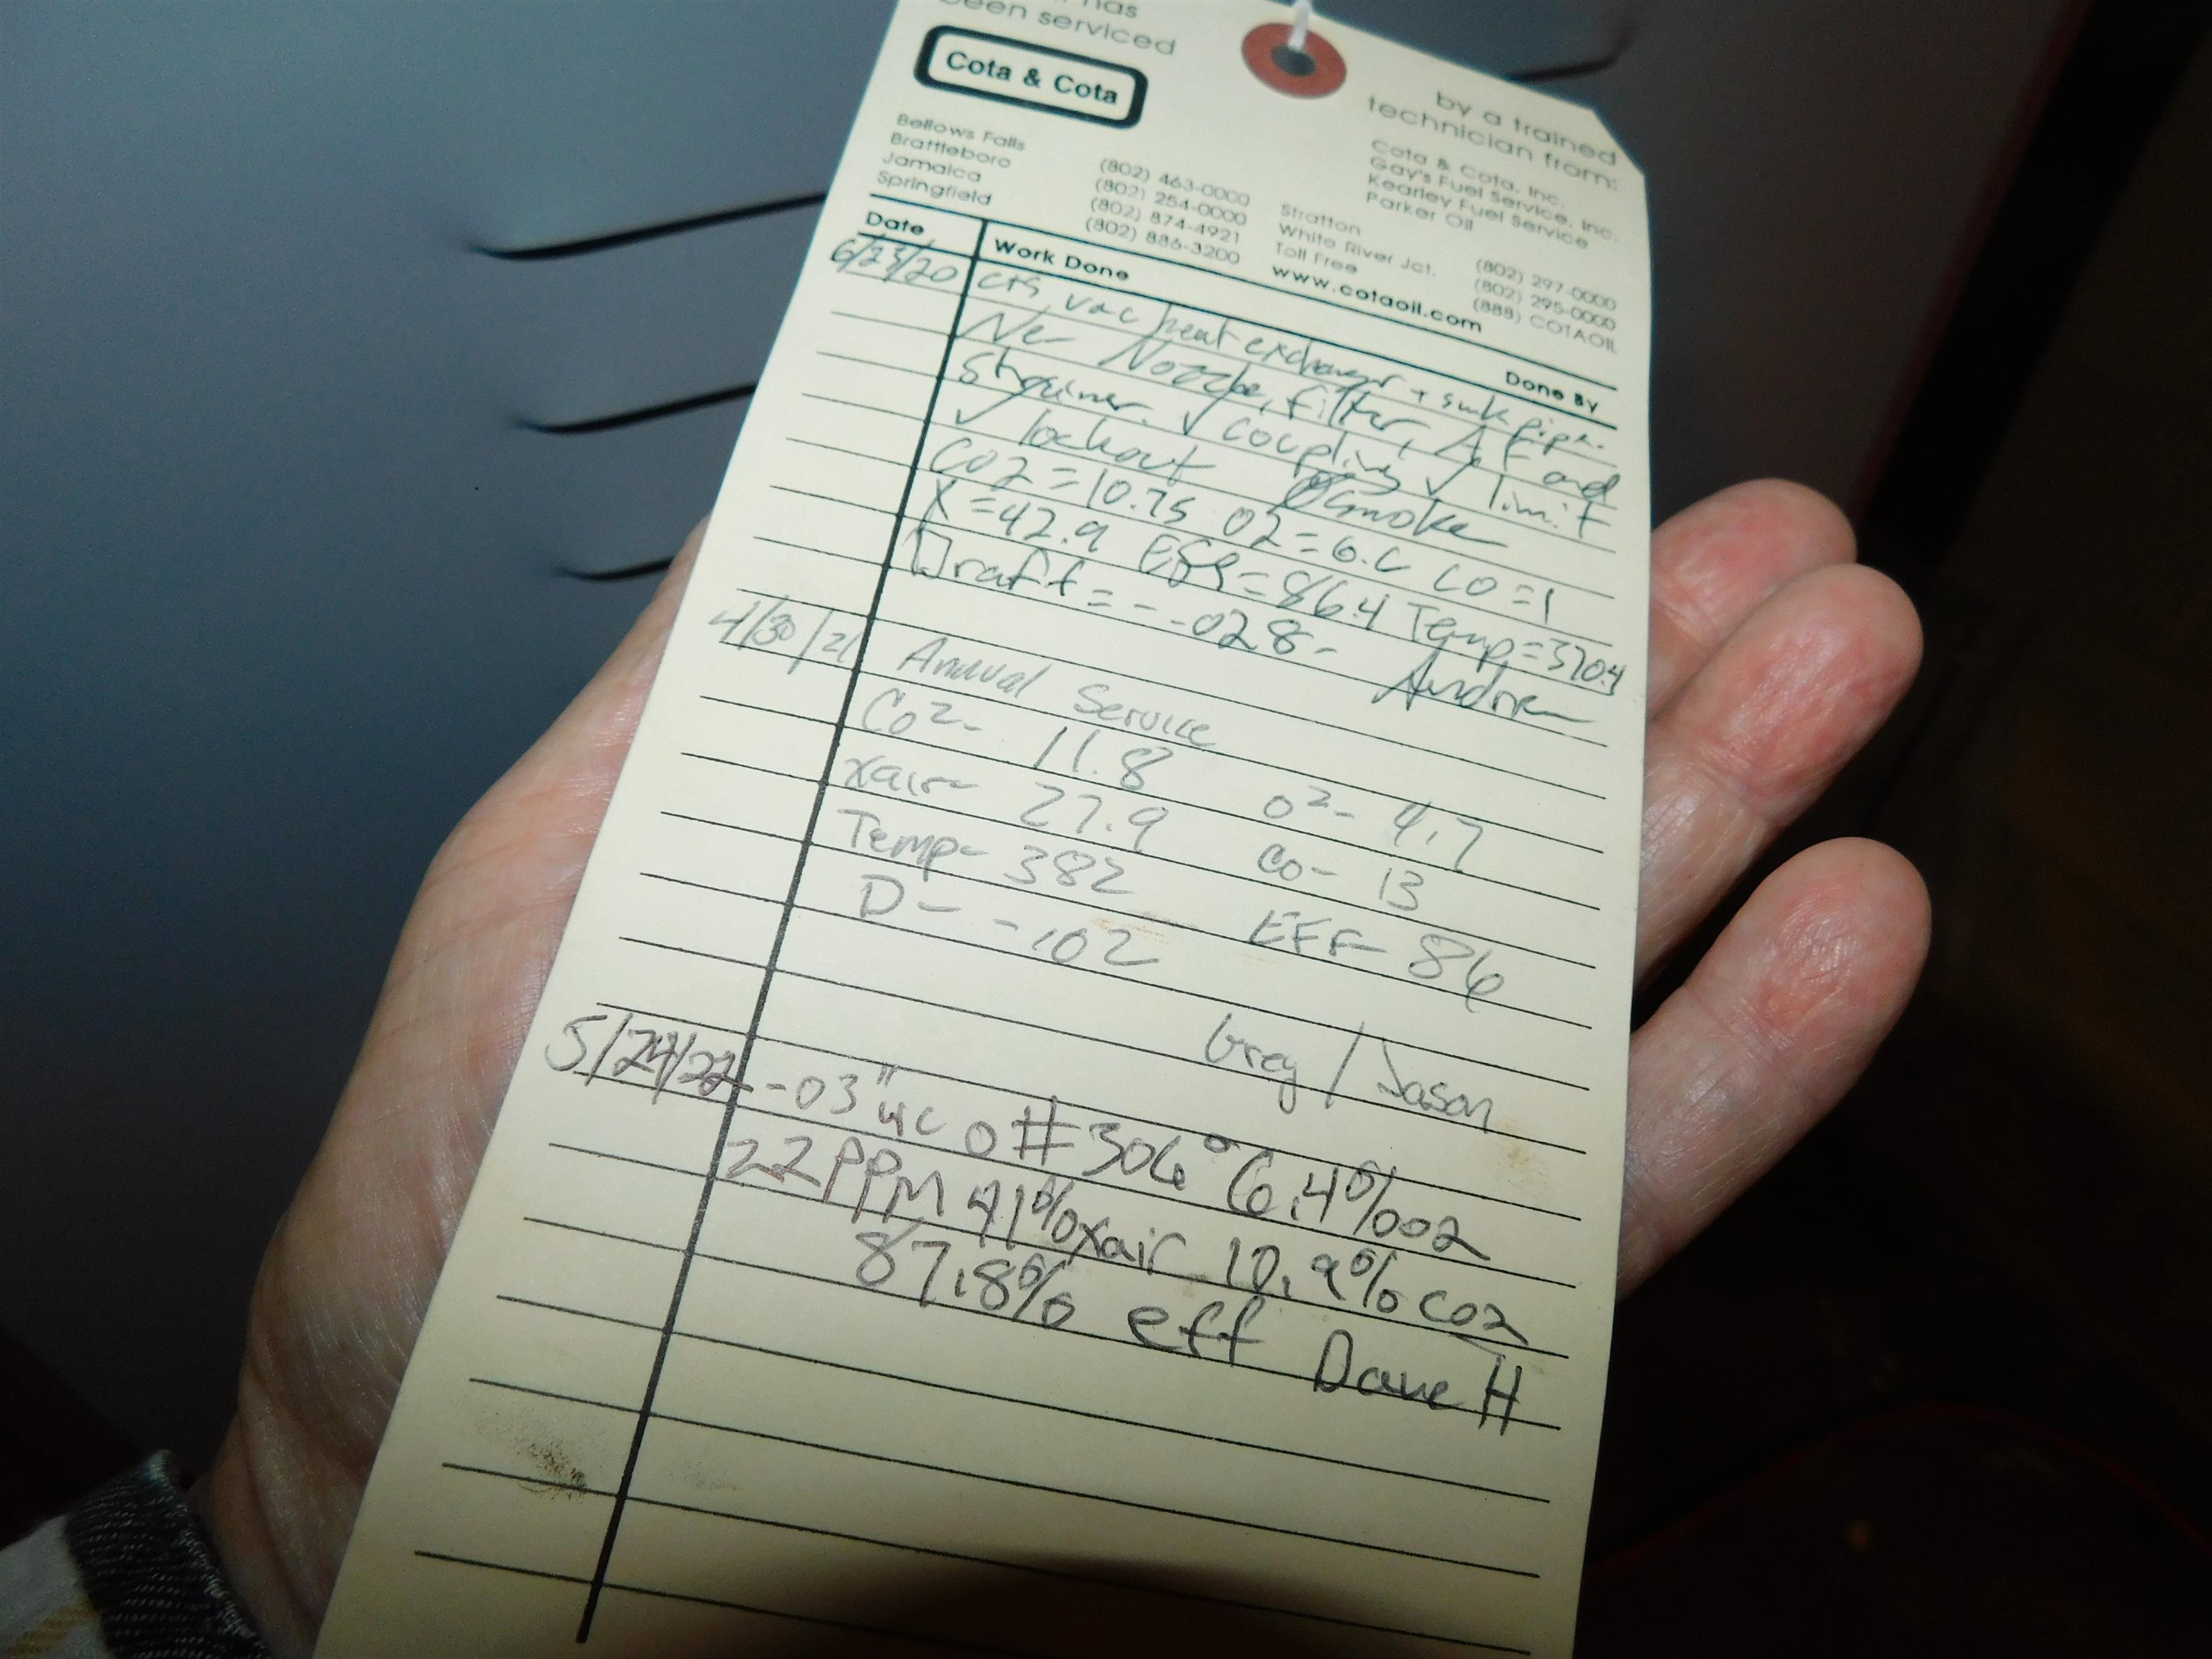 has
been serviced
Cota & Cota
by a trained
technician from:
Bellows Falls (802) 463-0000
Brattleboro (802) 254-0000
Jamaica (802) 874-4921
Springfield (802) 886-3200
Stratton (802) 297-0000
White River Jct. (802) 295-0000
Toll Free (888) COTAOIL
www.cotaoil.com
Cota & Cota, Inc.
Gay's Fuel Service, Inc.
Kearley Fuel Service
Parker Oil
Date Work Done Done By
6/23/20 vac heat exchanger + smk pipe.
Nozzle, filter, and
Strainer. ✓ coupling ✓ limit
✓ lockout Ø smoke
CO2 = 10.75 O2 = 6. CO = 1
X = 42.9 Eff = 86.4 Temp = 370.4
Draft = -.028-
4/30/21 Annual Service
Co2- 11.8 O2- 4.7
xair- 27.9 Co- 13
Temp- 382 EFF- 86
D- -.02
Greg / Jason
5/24/22 -03"wc 0# 306° 6.4%O2
22PPM 41%xair 10.9%CO2
87.8% eff Dave H